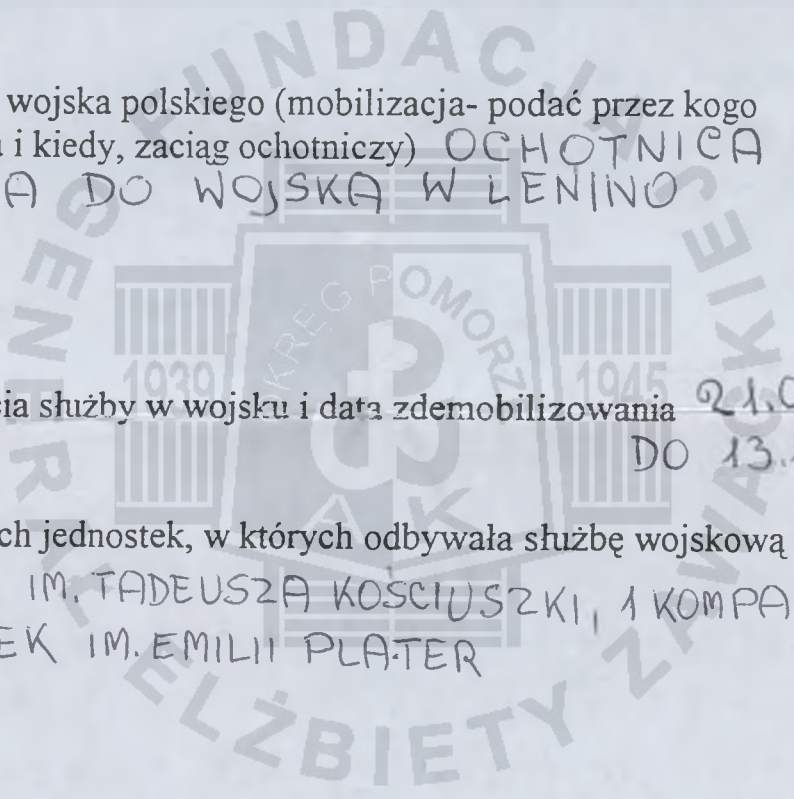 wojska polskiego (mobilizacja- podać przez kogo
i kiedy, zaciąg ochotniczy) OCHOTNICA
A DO WOJSKA W LENINO
służby w wojsku i data zdemobilizowania 21.0
DO 13.
ch jednostek, w których odbywała służbę wojskową
IM. TADEUSZA KOSCIUSZKI, 1 KOMPA
EK IM. EMILII PLATER
FUNDACJA
GENERAŁ ELŻBIETY ZAWACKIEJ
OKRĘG POMORZE
1939 1945
AK